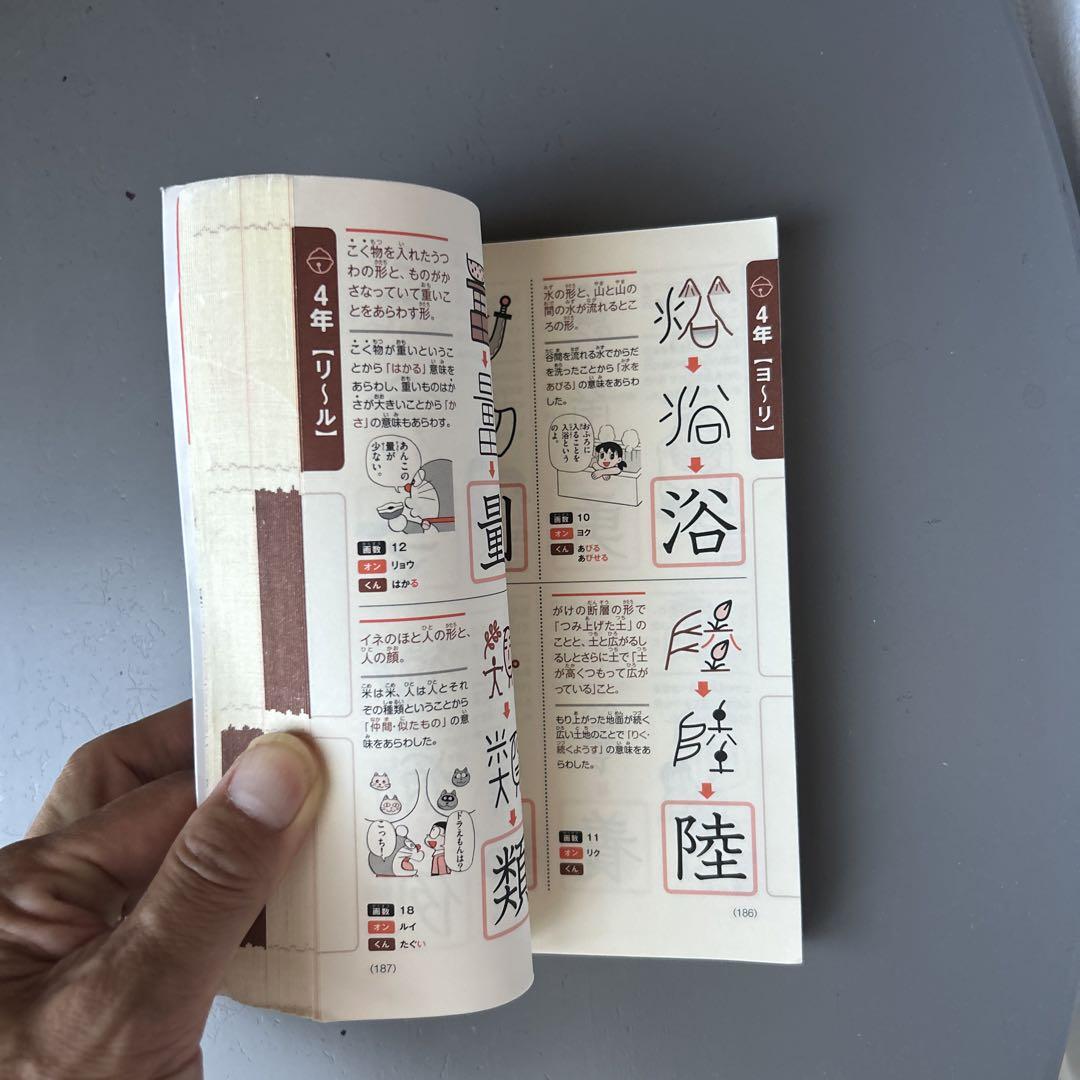 4年【ヨ〜リ】
浴
水の形と、山と山の
間の水が流れるとこ
ろの形。
谷間を流れる水でからだ
を洗ったことから「水を
あびる」の意味をあらわ
した。
おふろに
入ることを
入浴という
のよ。
画数 10
オン ヨク
くん あびる
あびせる
陸
がけの断層の形で
「つみ上げた土」の
ことと、土と広がるし
るしとさらに土で「土
が高くつもって広が
っている」こと。
もり上がった地面が続く
広い土地のことで「りく・
続くようす」の意味をあ
らわした。
画数 11
オン リク
くん
(186)
4年【リ〜ル】
量
こく物を入れたうつ
わの形と、ものがか
さなっていて重いこ
とをあらわす形。
こく物が重いというこ
とから「はかる」意味を
あらわし、重いものはか
さが大きいことから「か
さ」の意味もあらわす。
あんこの
量が
少ない。
画数 12
オン リョウ
くん はかる
類
イネのほと人の形と、
人の顔。
米は米、人は人とそれ
ぞの種類ということから
「仲間・似たもの」の意
味をあらわした。
ドラえもんは?
こっち!
画数 18
オン ルイ
くん たぐい
(187)